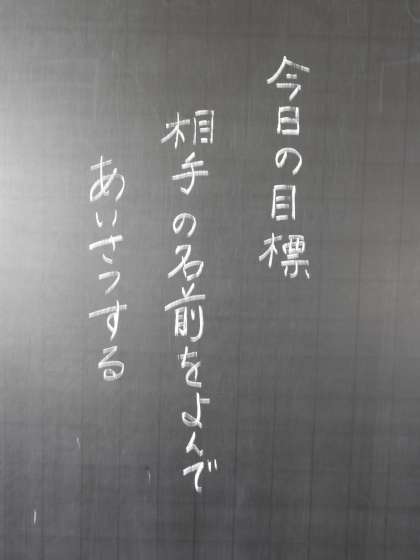 今日の目標
相手の名前をよんで
あいさつする